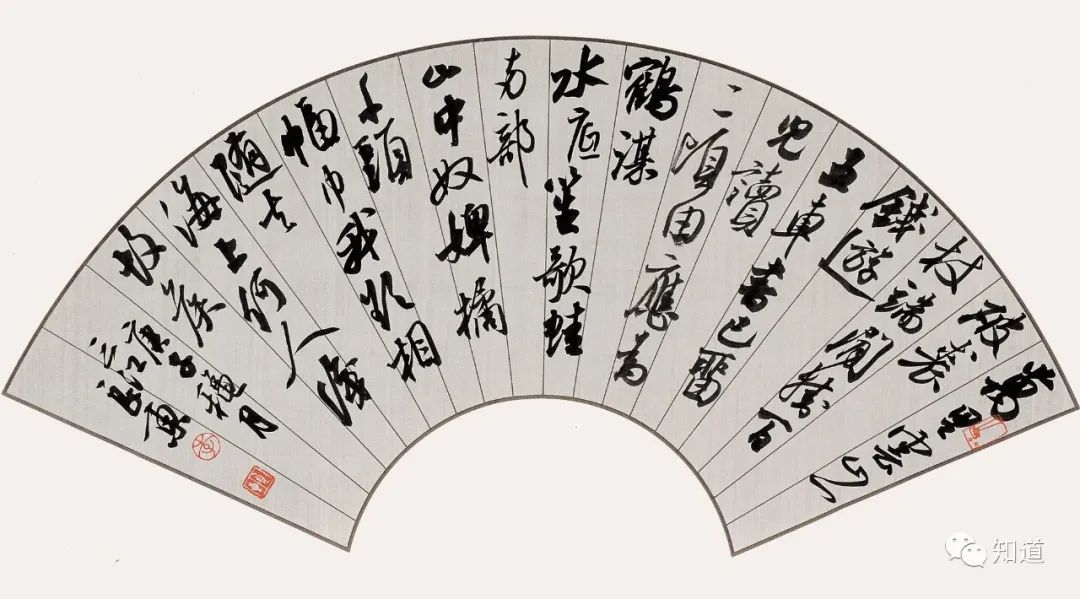 萬里雲山一
破裘
杖端閒挂百
錢遊
五車書已留
兒讀
二頃田應為
鶴謀
水底笙歌蛙
兩部
山中奴婢橘
千頭
幅巾我欲相
隨去
海上何人識
故侯
庚子穐月
知道